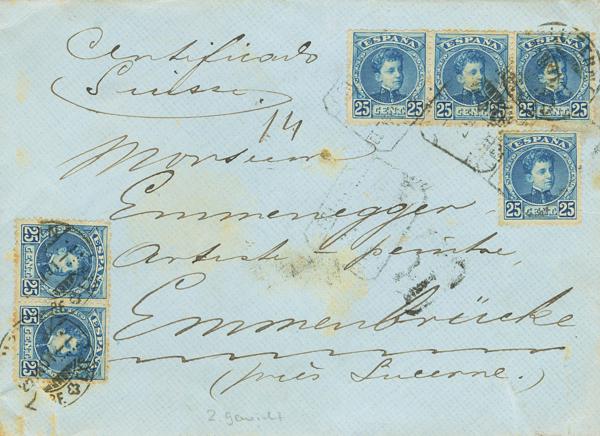 Certificado
Suisse
14
Monsieur
Emmenegger
Artiste - peintre,
Emmenbrücke
(près Lucerne.)
2. Gewicht
ESPAÑA
25 CENT. 25
ESPAÑA
25 CENT. 25
ESPAÑA
25 CENT. 25
ESPAÑA
25 CENT. 25
ESPAÑA
25 CENT. 25
ESPAÑA
25 CENT. 25